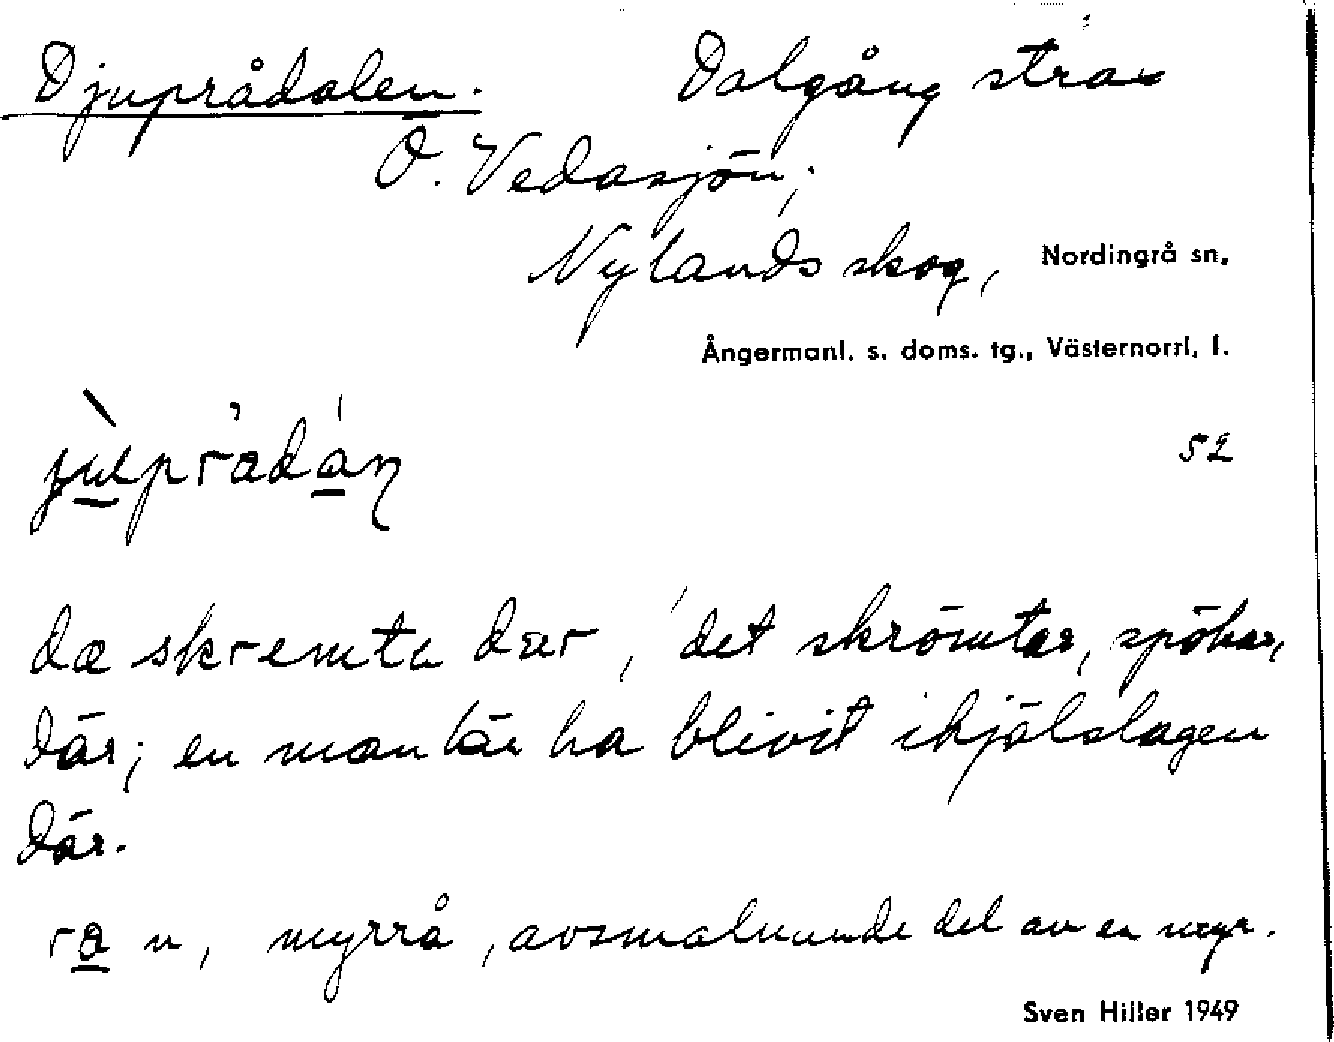 Djuprådalen. Dalgång strax
Ö. Vedasjön;
Nylands skog, Nordingrå sn,
Ångermanl. s. doms. tg., Västernorrl. l.
52
dæ skremta dær, 'det skrömtar, spökar,
där; en man lär ha blivit ihjälslagen
där.
ra n, myrrå, avsmalnande del av en myr.
Sven Hiller 1949